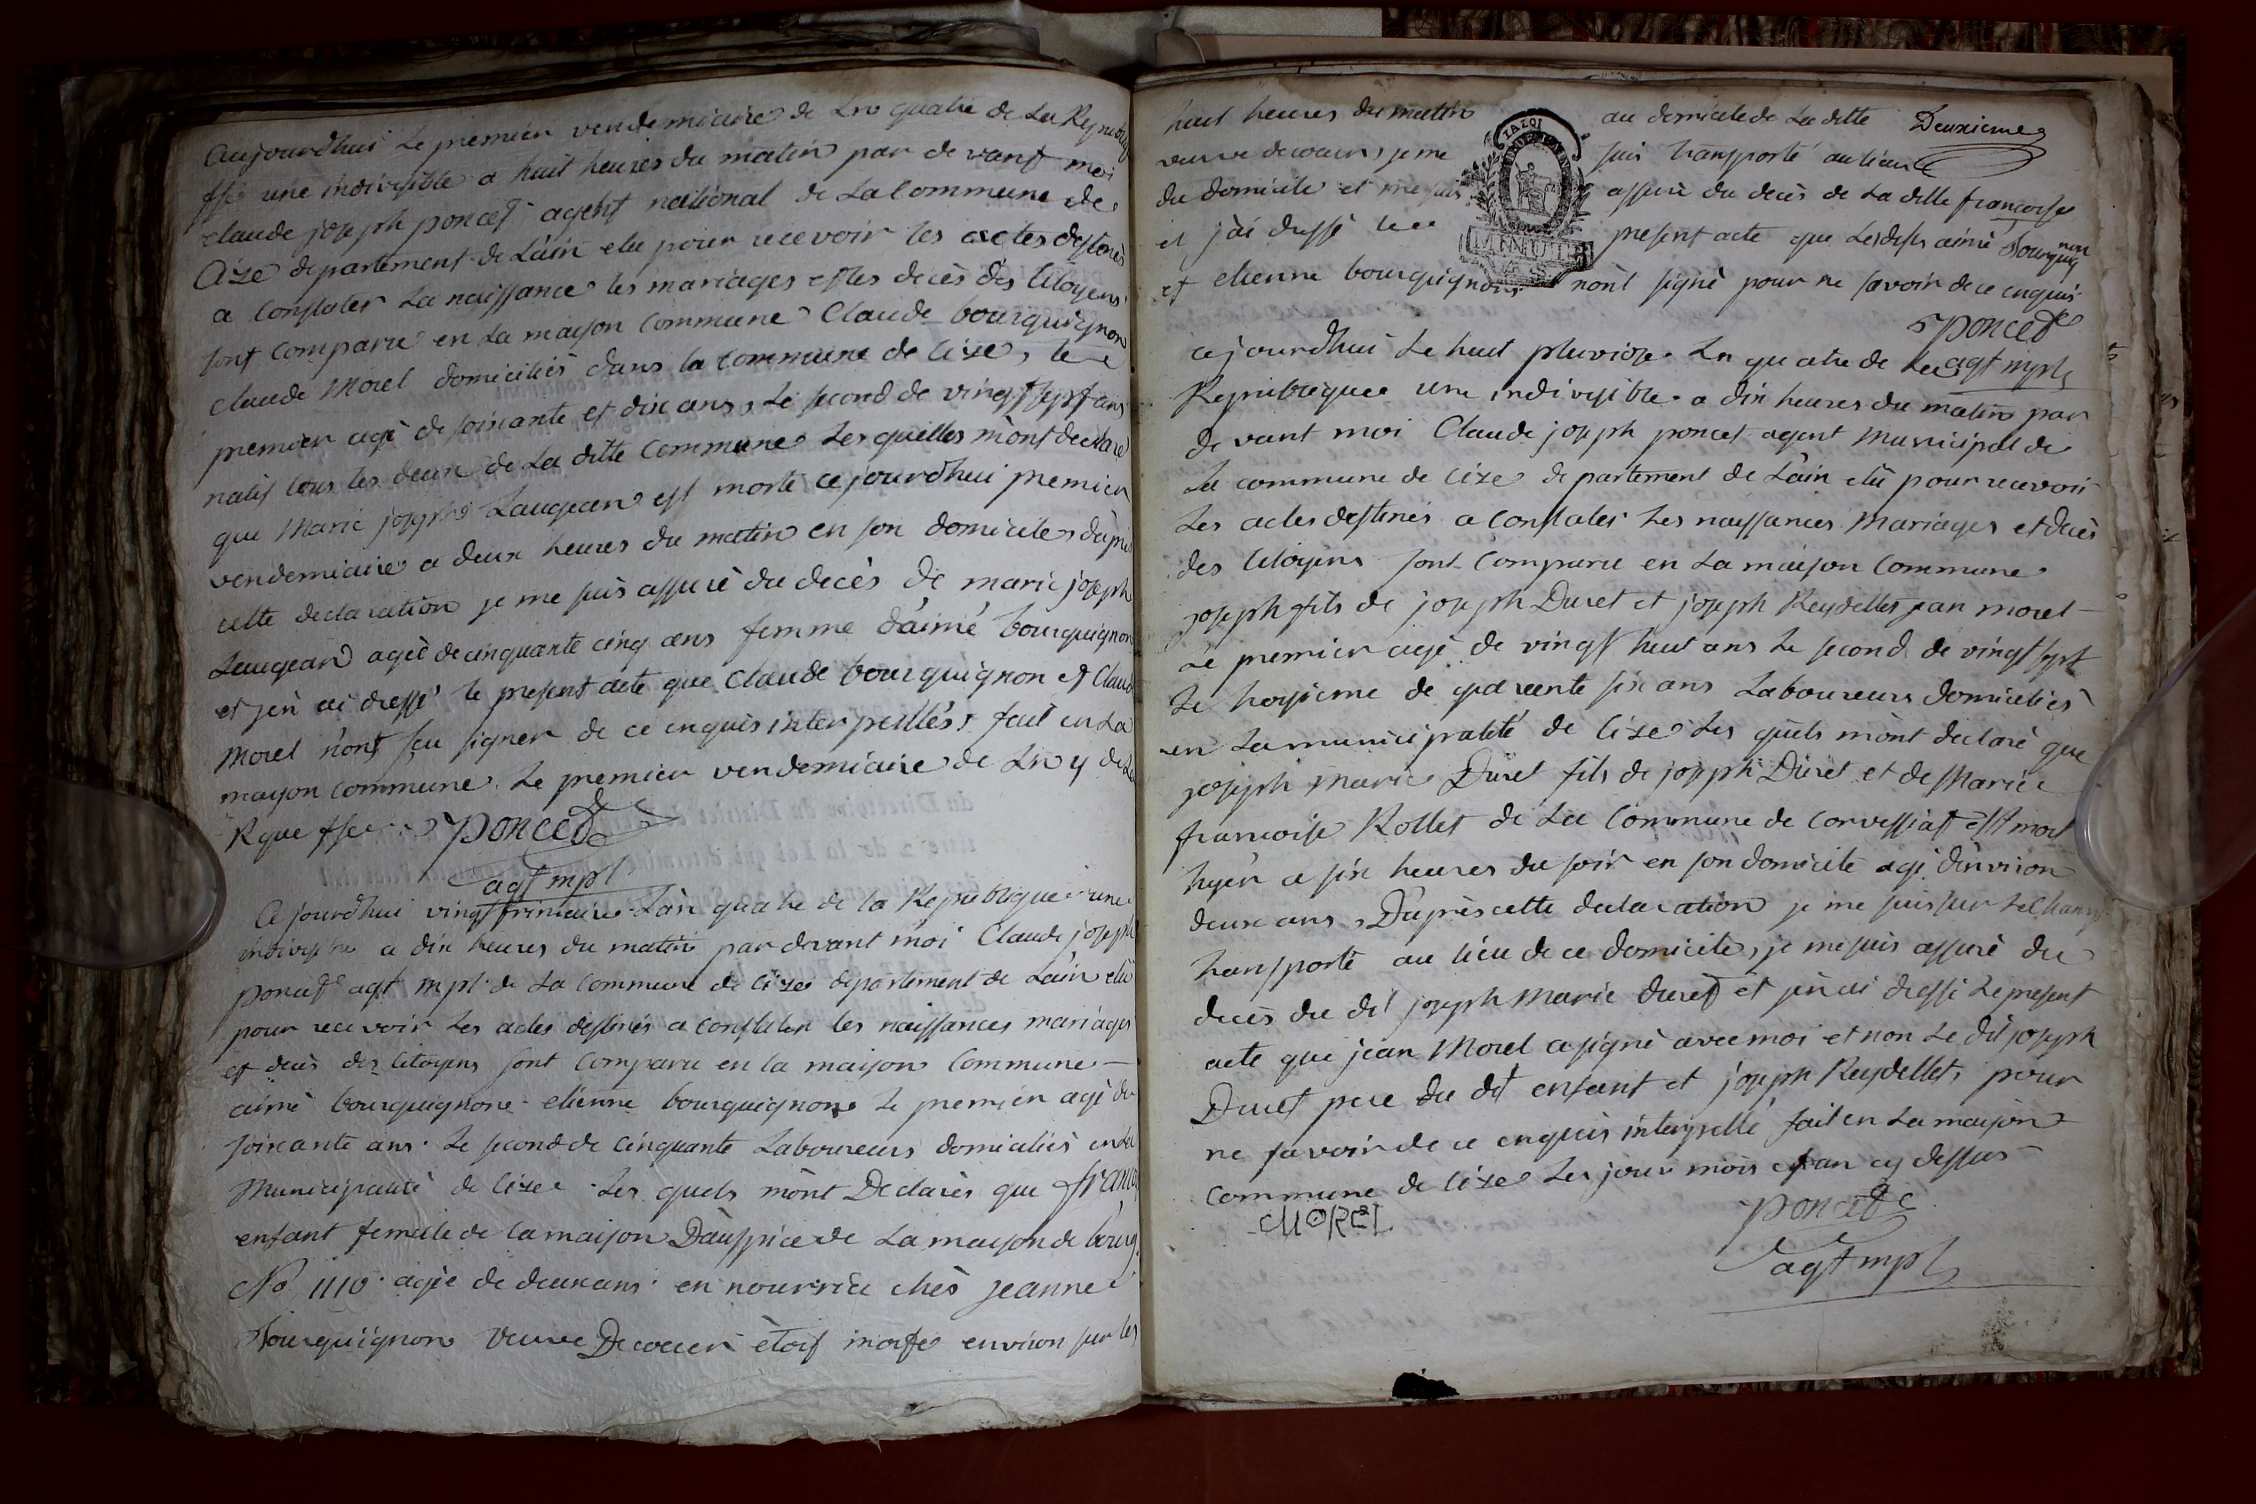 aujourdhui le premier vendemiaire de Lro quatre de La Republiq
fse une indivisible a huit heures du matin par devant moi
claude joseph poncet agent national de La Commune de
Cize departement de L'ain elu pour recevoir les actes destinés
a Constater La naissance les mariages et les decès des Citoyens
sont comparu en La maison Commune Claude bourguignon
claude Morel domiciliés dans la commune de Cize, le
premier agé de soixante et dix ans, Le second de vingt sept ans
natif tous les deux de La ditte Commune Lesquelles m'ont declaré
que Marie josephe Laugean est morte ce jourd'hui premier
vendemiaire a deux heures du matin en son domicile, d'après
cette declaration je me suis assuré du decès de marie joseph
Laugean agée de cinquante cinq ans femme d'aimé bourguignon
et j'en ai dressé le present acte que Claude bourguignon et Claude
Morel n'ont seu signer de ce enquis interpellés, fait en La
mayson Commune Le premier vendemiaire de Lro 4 de La
Rque fse poncet
agt mpl
Ce jourdhui vingt frimaire L'an quatre de la Republique une
indivisible a dix heures du matin par devant moi Claude joseph
poncet agt mpl de La Commune de Cize departement de L'ain elu
pour recevoir Les actes destinés a constater les naissances mariages
et decès des Citoyens sont Comparu en la maison Commune
aimé bourguignon elienne bourguignon Le premier agé de
soixante ans Le second de cinquante Laboureurs domiciliés en La
Municipalité de Cize Les quels m'ont Declarés que franço
enfant femelle de la maison D'auspice de La mayson de bourg
No 1110 agée de deux ans en nourrice chès jeanne
Bourguignon veuve Decoeur étoit morte environ sur les
huit heures du mattin au domicile de La ditte Deuxieme
veuve decoeur, je me suis transporté au lieu
du domicile et me suis assuré du decès de La ditte françoise
et j'ai dressé le present acte que Lesdits aimé Bourguignon
et elienne bourguignon n'ont signé pour ne savoir de ce enquis
MINUTE
poncet
agt mpl
cejourdhui Le huit pluviose Ln quatre de La
Republique une indivisible a dix heures du matin par
devant moi Claude joseph poncet agent Municipal de
La commune de Cize departement de L'ain elu pour recevoir
Les actes destinés a Constater Les naissances Mariages et decès
des Citoyens sont Comparu en La maison Commune
joseph fils de joseph Duret et joseph Reydellet jean morel
Le premier agé de vingt huit ans Le second de vingt sept
Le troysieme de quarente six ans Laboureurs domiciliés
en La municipalité de Cize Les quels m'ont declaré que
joseph Marie Duret fils de joseph Duret et de Marie
francoise Rollet de La Commune de Corvessiat est mort
hyer a six heures du soir en son domicile agé d'inviron
deux ans, D'après cette declaration je me suis sur Le Champ
transporté au lieu de ce domicile, je me suis assuré du
decès du dit joseph Marie duret et j'en ai dressé Le present
acte que jean Morel a signé avec moi et non Le dit joseph
Duret pere du dt enfant et joseph Reydellet, pour
ne savoir de ce enquis interpellé fait en La maison
Commune de Cize Les jour mois et an cy dessus
MOREL poncet
agt mpl